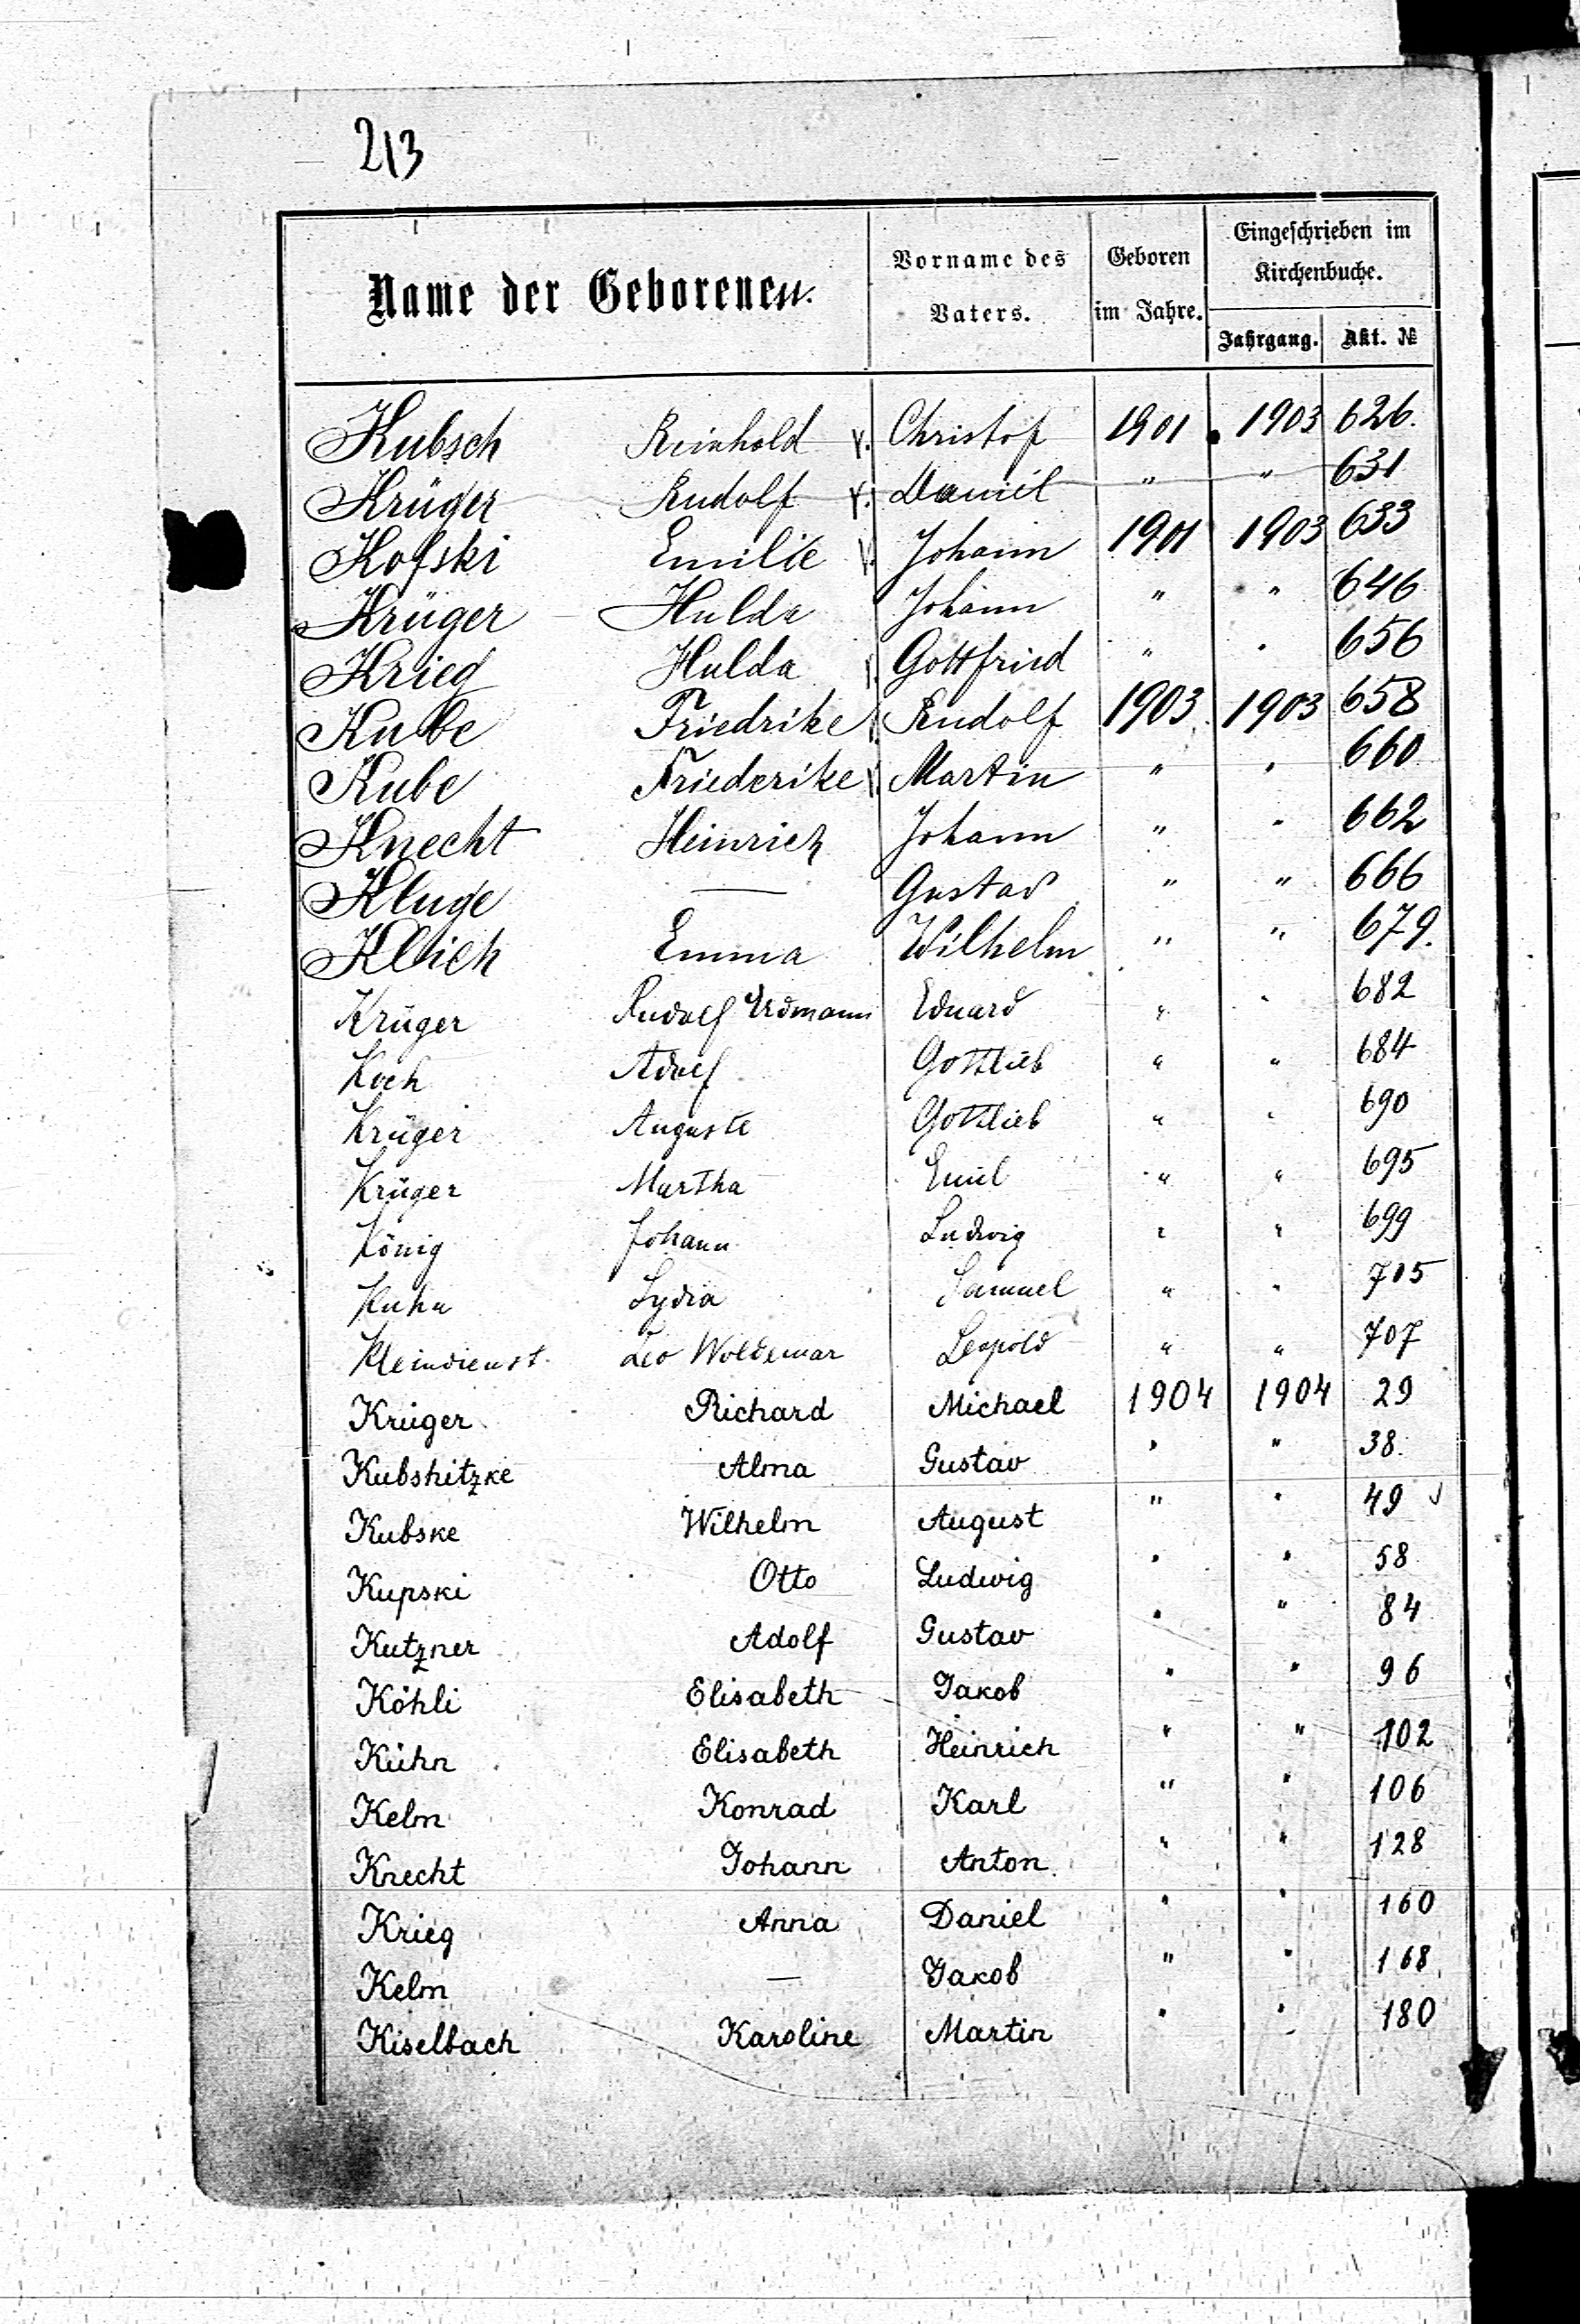 213
Name der Geborenen.
Vorname des Vaters.
Geboren im Jahre.
Eingeschrieben im Kirchenbuche.
Jahrgang. Akt. №
Kubsch Reinhold v. Christof 1901 1903 626.
Krüger Rudolf v. Daniel " " 631
Kofski Emilie v. Johann 1901 1903 633
Krüger Hulda Johann " " 646
Krieg Hulda Gottfried " " 656
Kube Friedrike Rudolf 1903 1903 658
Kube Friederike Martin " " 660
Knecht Heinrich Johann " " 662
Kluge — Gustav " " 666
Klich Emma Wilhelm " " 679.
Krüger Rudolf Erdmann Eduard " " 682
Koch Adolf Gottlieb " " 684
Krüger Auguste Gottlieb " " 690
Krüger Martha Emil " " 695
König Johann Ludwig " " 699
Kuhn Lydia Samuel " " 705
Kleindienst Leo Woldemar Leopold " " 707
Krüger Richard Michael 1904 1904 29
Kubshitzke Alma Gustav " " 38.
Kubske Wilhelm August " " 49
Kupski Otto Ludwig " " 58
Kutzner Adolf Gustav " " 84
Köhli Elisabeth Jakob " " 96
Kühn Elisabeth Heinrich " " 102
Kelm Konrad Karl " " 106
Knecht Johann Anton " " 128
Krieg Anna Daniel " " 160
Kelm — Jakob " " 168
Kiselbach Karoline Martin " " 180